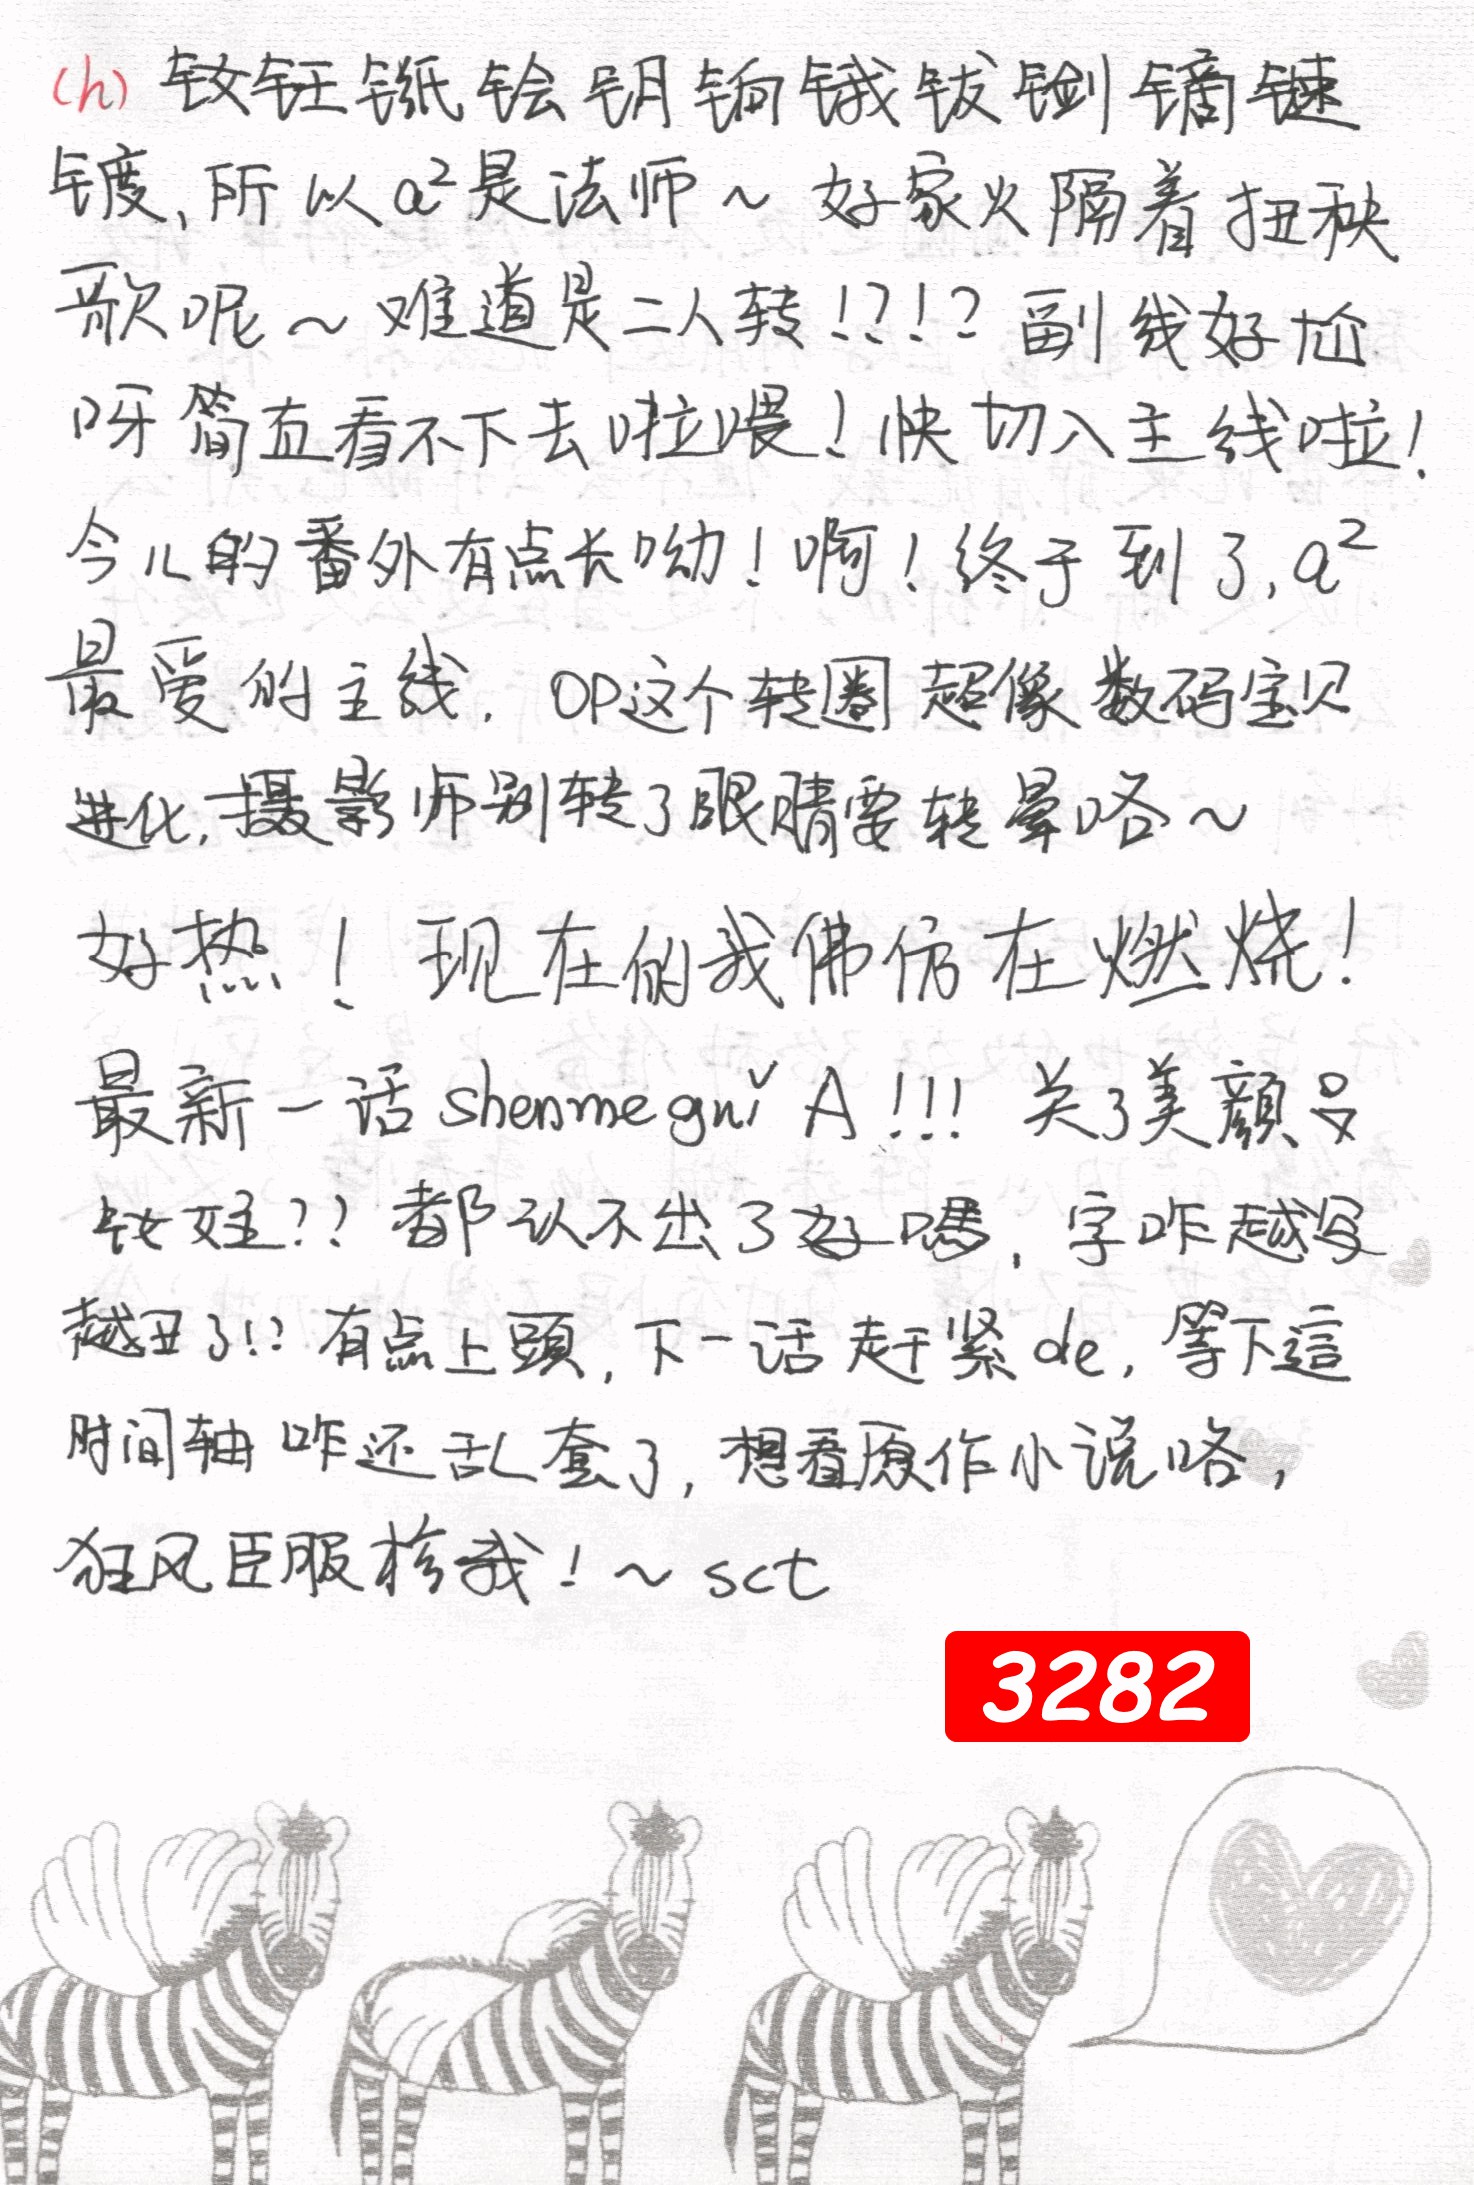 (h) 钕钰铥铪钥银锇钹钊镝键
镀,所以a²是法师～好家火隔着扭秧
歌呢～难道是二人转!?!?副线好尬
呀简直看不下去啦喂!快切入主线啦!
今儿的番外有点长呦!啊!终于到了,a²
最爱的主线.OP这个转圈超像数码宝贝
进化,摄影师别转了眼睛要转晕咯～
好热!现在的我佛仿在燃烧!
最新一话shenmeguǐA!!!关了美颜
钕娃??都认不出了好嗎,字咋越写
越丑了!?有点上頭,下一话赶紧de,等下這
时间轴咋还乱套了,想看原作小说咯,
狂风臣服於我!～sct
3282